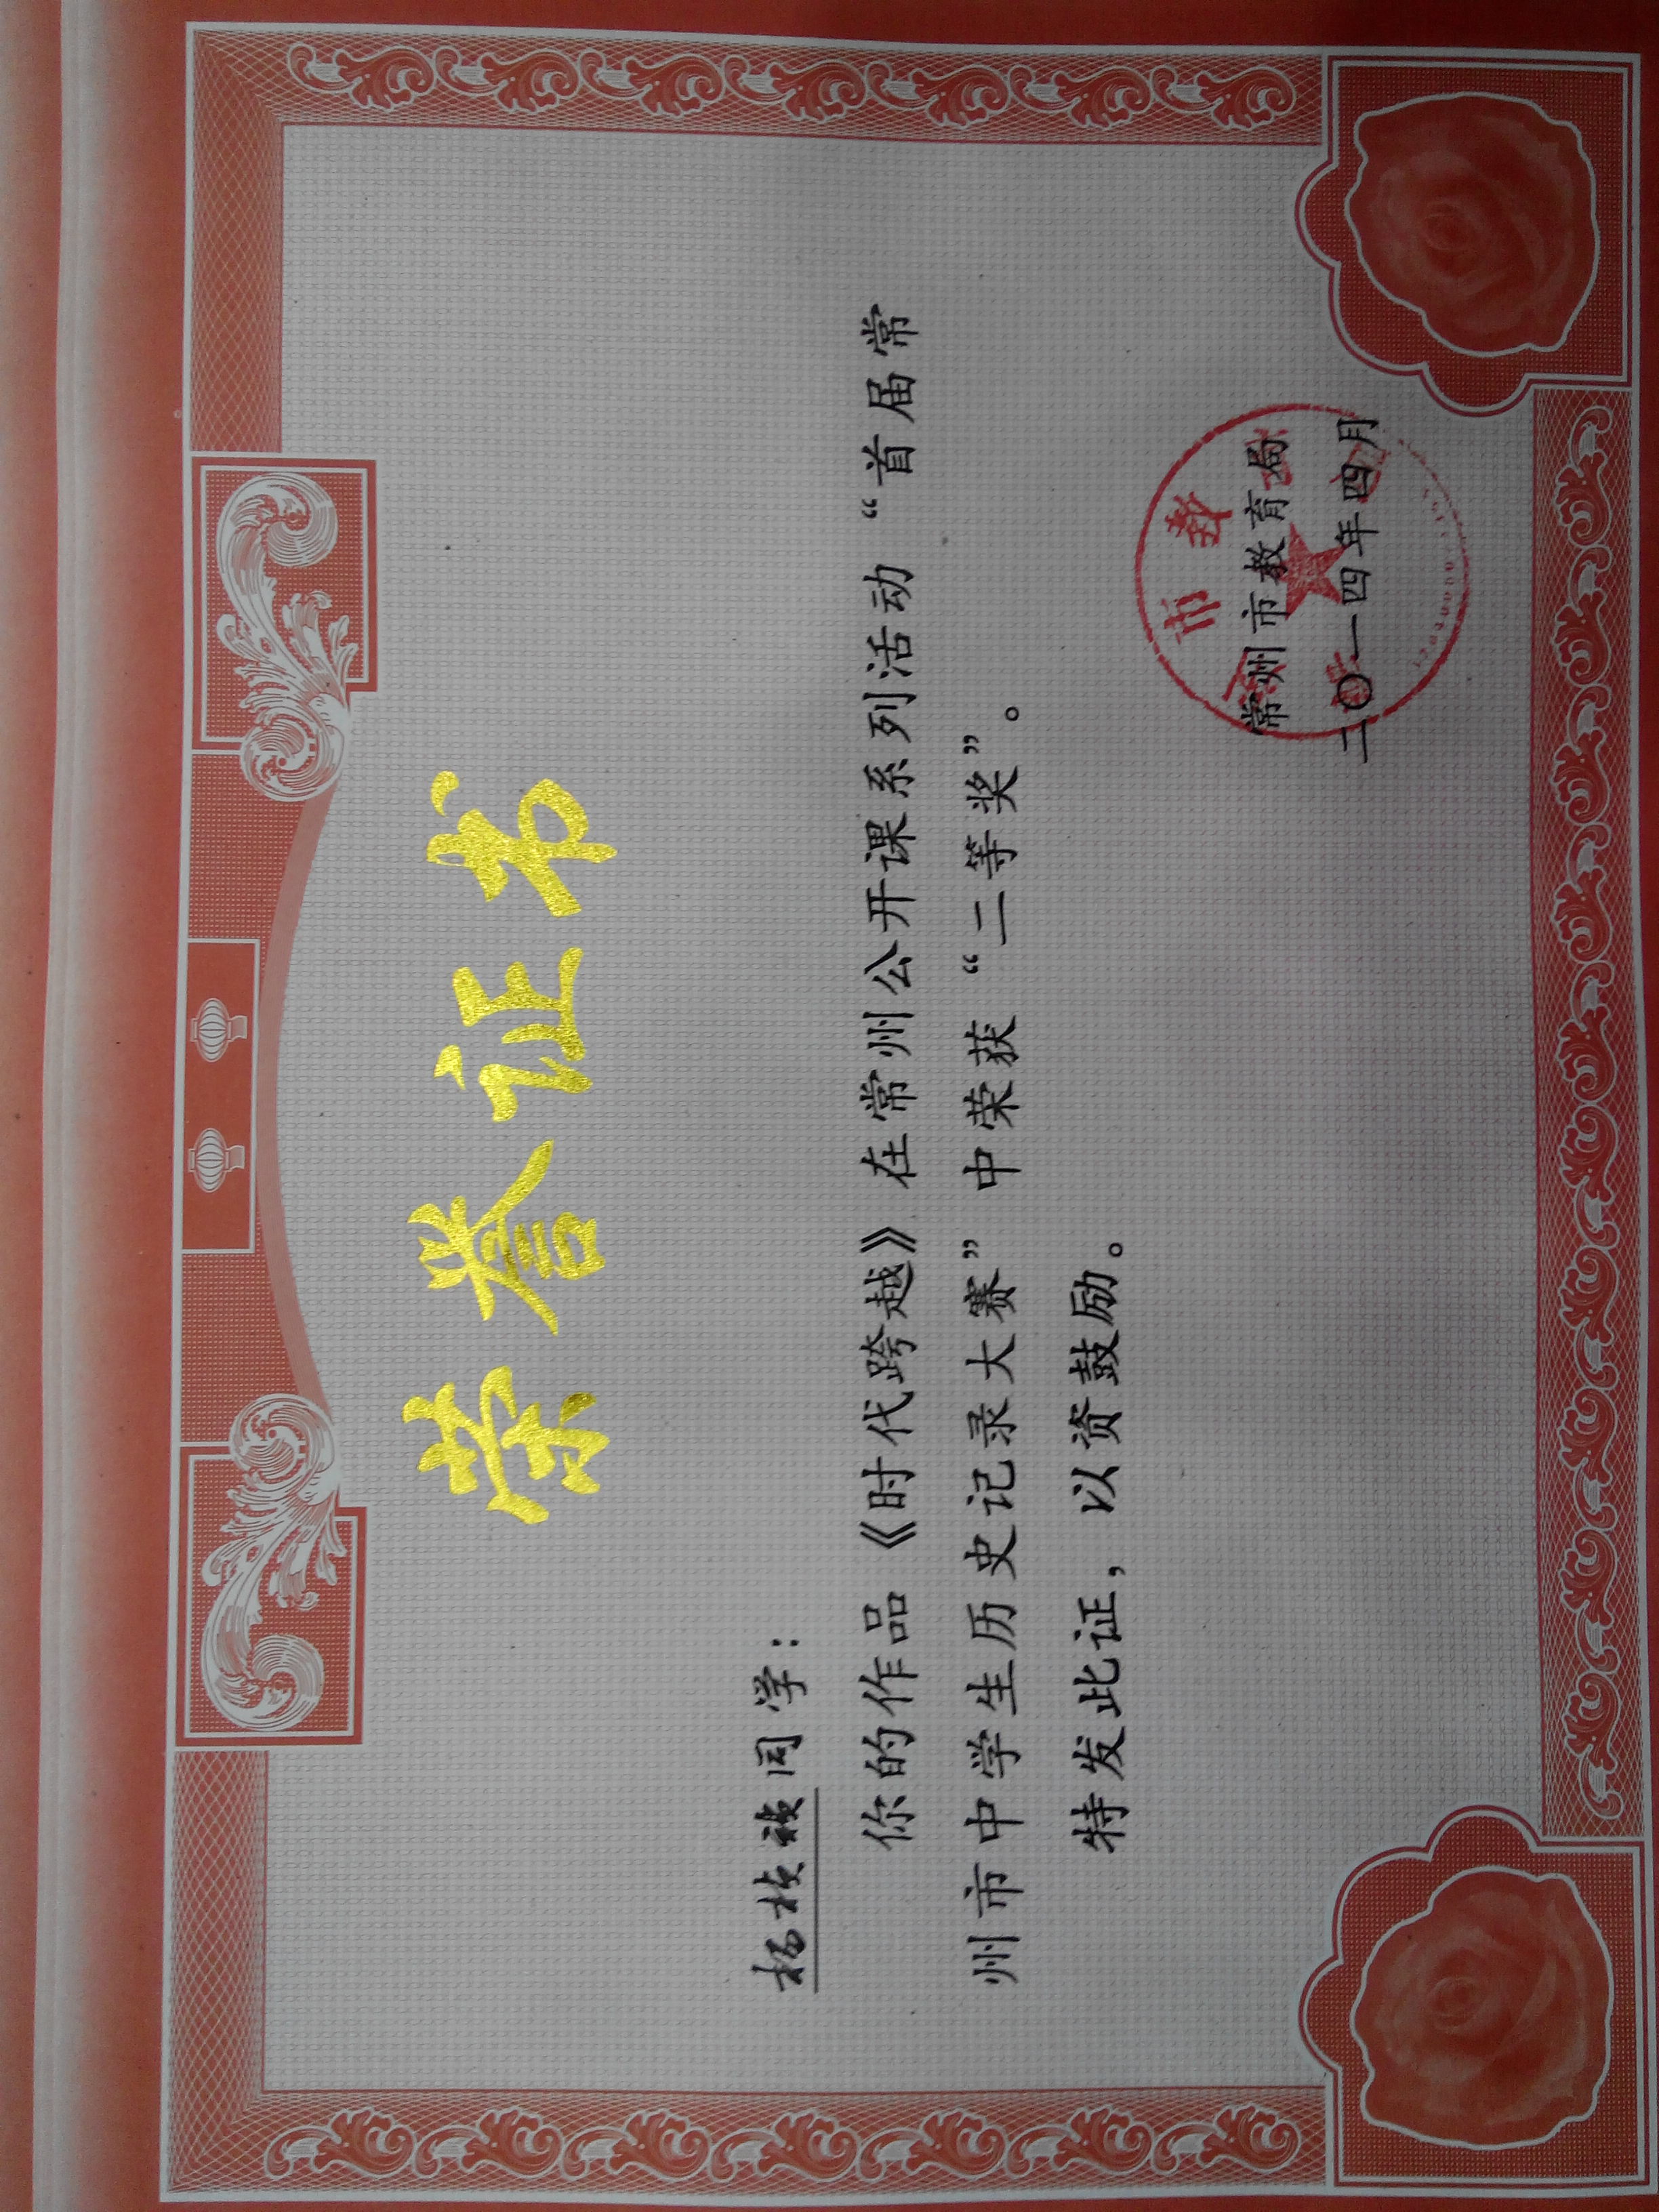 荣誉证书
杨桢禛同学：
你的作品《时代跨越》在常州公开课系列活动“首届常
州市中学生历史记录大赛”中荣获“二等奖”。
特发此证，以资鼓励。
常州市教育局
二〇一四年四月